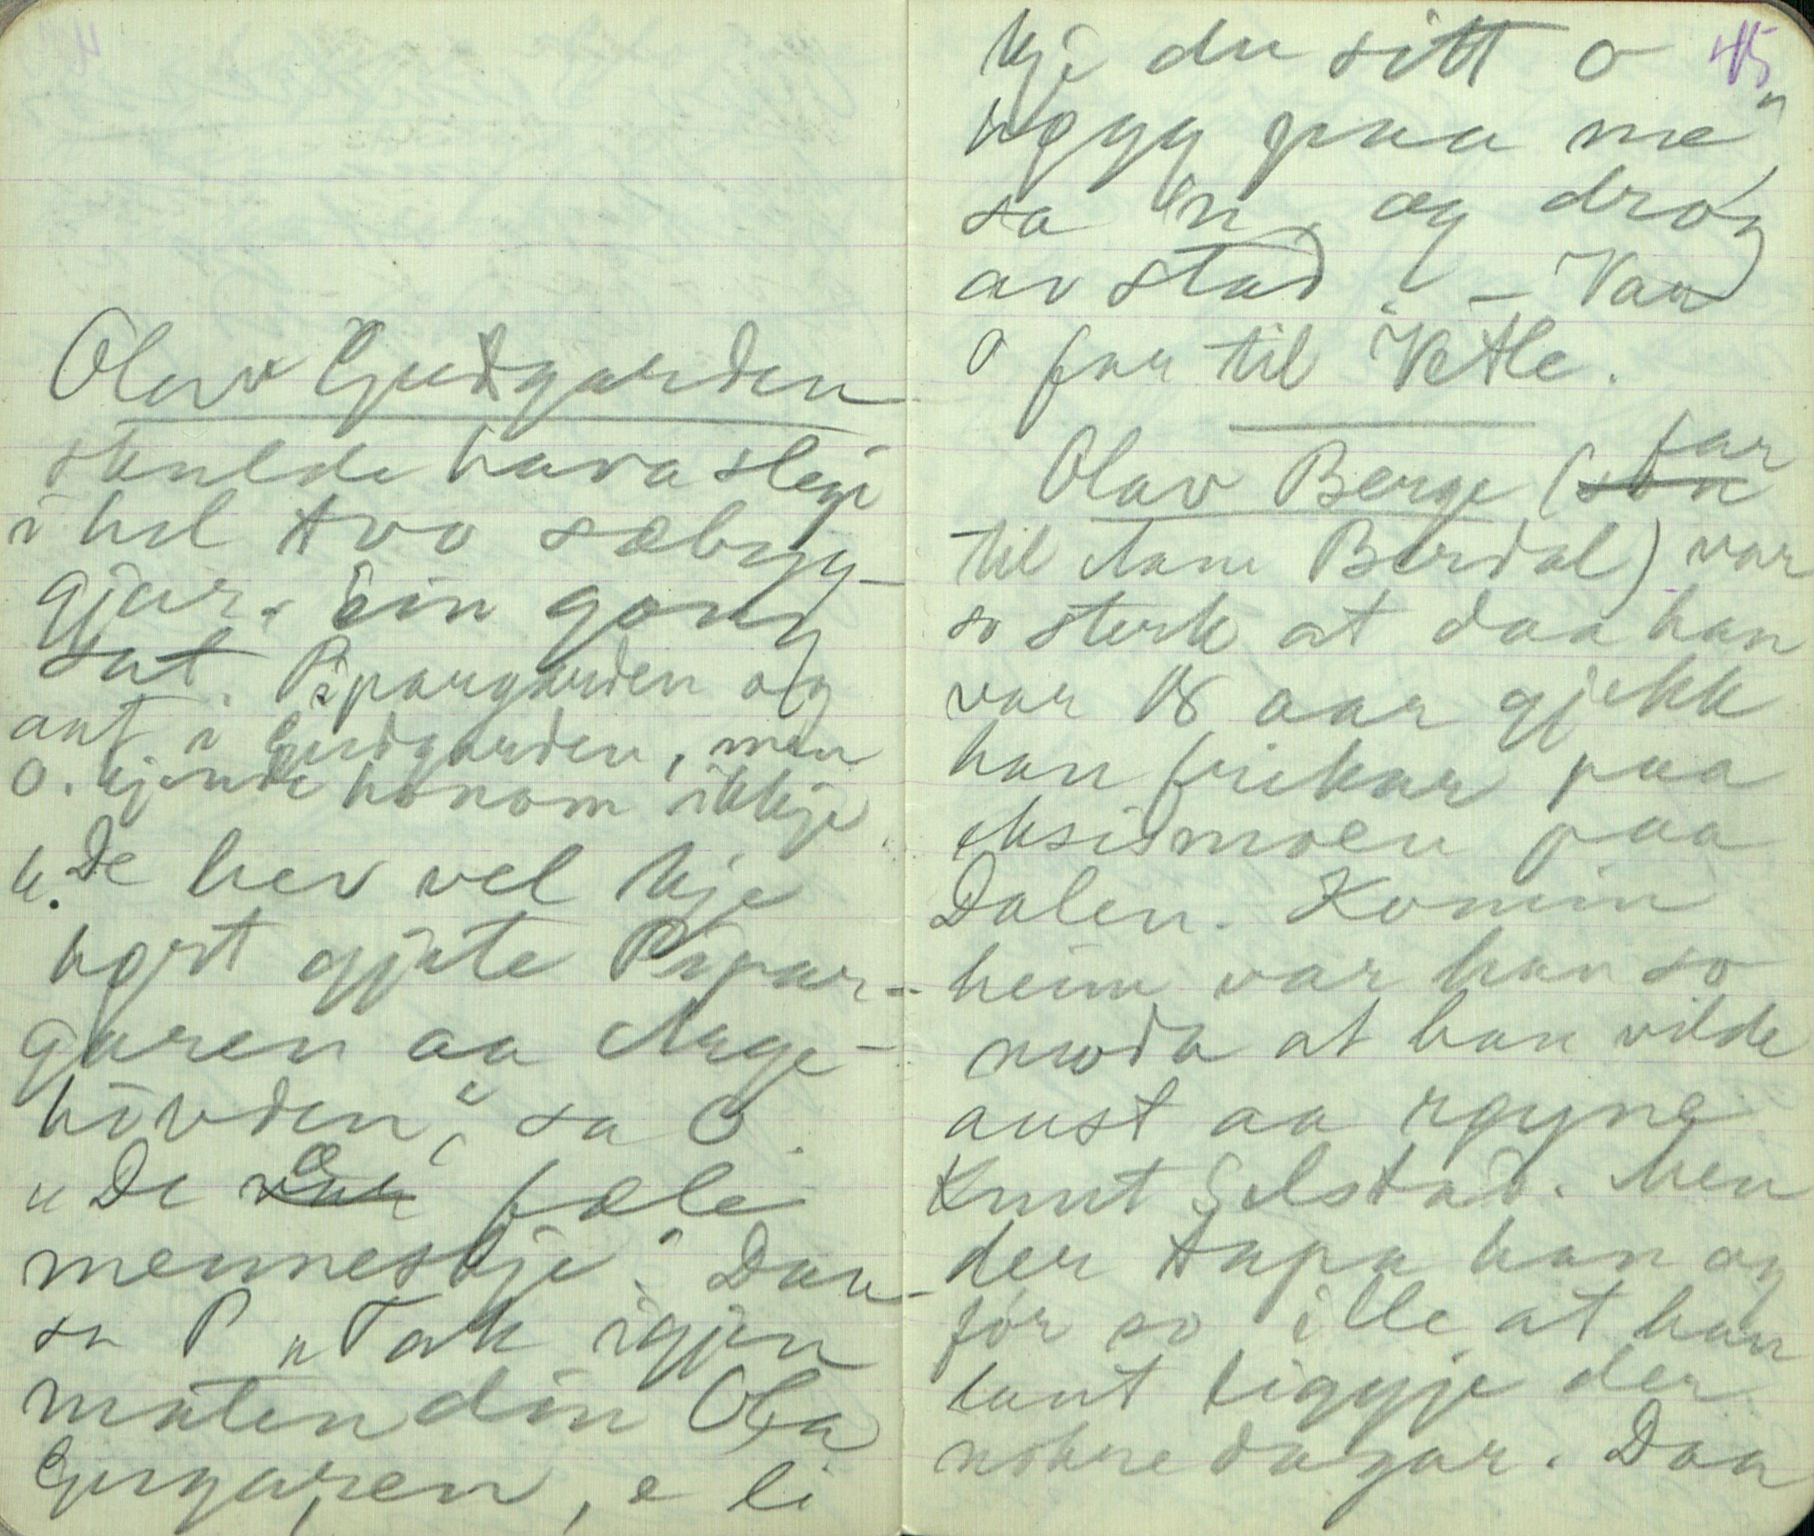 Olav Gudgarden
skulde hava slegi
i hel tvo sæbyg-
gjar. Ein gong
sat Pipargarden og
aat i Gudgarden, men
O. kjende honom ikkje
"De hev vel kje
høyrt gjete Pipar-
garen aa Aage-
hovden", sa O.
"De æ fæle
menneskje". Daa
sa P "Tak igjen
maten din Ola
Gugaren, e li
45
kje du sitt o
høgg paa me"
sa 'n, og drog
av stad. – Var
o far til Vetle.
Olav Berge (son far
til Aani Berdal) var
so sterk at daa han
var 18 aar gjekk
han frikar paa
eksismoen paa
Dalen. Komin
heim var han so
moda at han vilde
aust aa røyne
Knut Selstad. Men
der tapa han og
for so ille at han
laut liggje der
nokre dagar. Daa